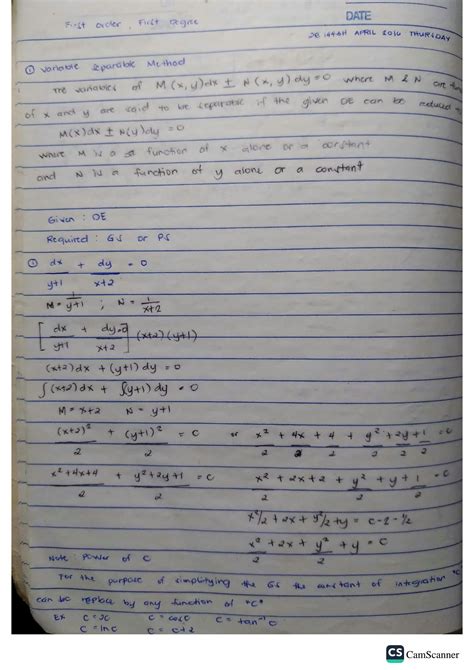 DATE
First order, First Degree
28 APRIL 2016 THURSDAY
① Variable Separable Method
The variables of M(x,y)dx ± N(x,y)dy=0 where M & N are
of x and y are said to be separable if the given DE can be reduced
M(x)dx ± N(y)dy = 0
where M is a function of x alone or a constant
and N is a function of y alone or a constant
Given : DE
Required : GS or PS
① dx/y+1 + dy/x+2 = 0
M = 1/y+1 ; N = 1/x+2
[dx/y+1 + dy/x+2 =0] (x+2)(y+1)
(x+2)dx + (y+1)dy = 0
∫(x+2)dx + ∫(y+1)dy = 0
M = x+2 N = y+1
(x+2)²/2 + (y+1)²/2 = C or x²/2 + 4x/2 + 4/2 + y²/2 + 2y/2 + 1/2 = C
x²+4x+4/2 + y²+2y+1/2 = C x²/2 + 2x + 2 + y²/2 + y + 1/2 = C
x²/2 + 2x + y²/2 + y = C-2-½
x²/2 + 2x + y²/2 + y = C
Note : Power of C
For the purpose of simplifying the GS the constant of integration "C"
can be replace by any function of "C"
Ex C = 2C C = cosC C = tan⁻¹ C
C = lnC C = C+2
CS CamScanner